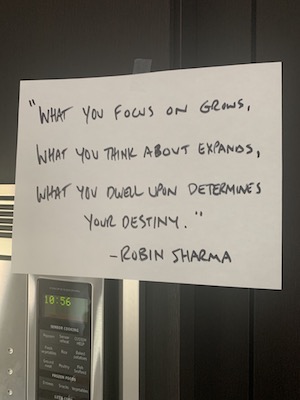 "WHAT YOU FOCUS ON GROWS,
WHAT YOU THINK ABOUT EXPANDS,
WHAT YOU DWELL UPON DETERMINES
YOUR DESTINY."
-ROBIN SHARMA
10:56
SENSOR COOKING